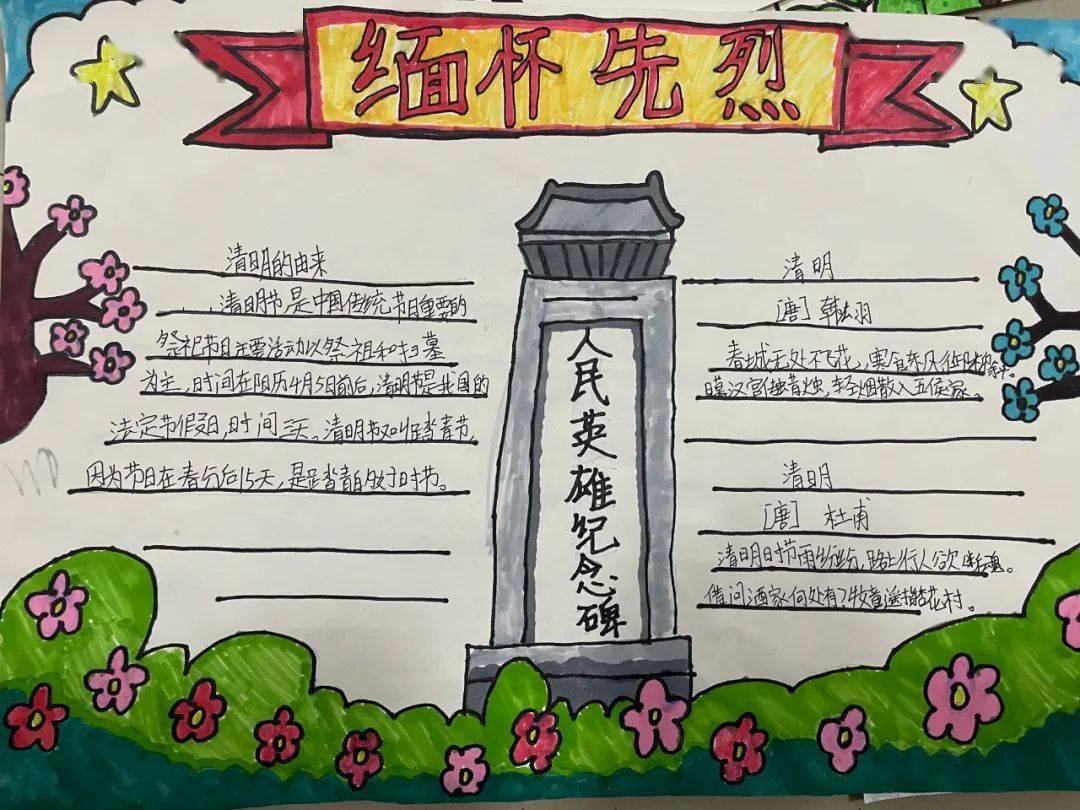 缅怀先烈
清明的由来
清明节,是中国传统节日重要的
祭祀节日主要活动以祭祖和扫墓
为主,时间在阳历4月5日前后,清明节是我国的
法定节假日,时间三天。清明节又叫踏青节,
因为节日在春分后15天,是踏青的好时节。
人民英雄纪念碑
清明
[唐] 韩翃
春城无处不飞花,寒食东风御柳斜。
暮汉宫传蜡烛,轻烟散入五侯家。
清明
[唐] 杜甫
清明时节雨纷纷,路上行人欲断魂。
借问酒家何处有?牧童遥指杏花村。